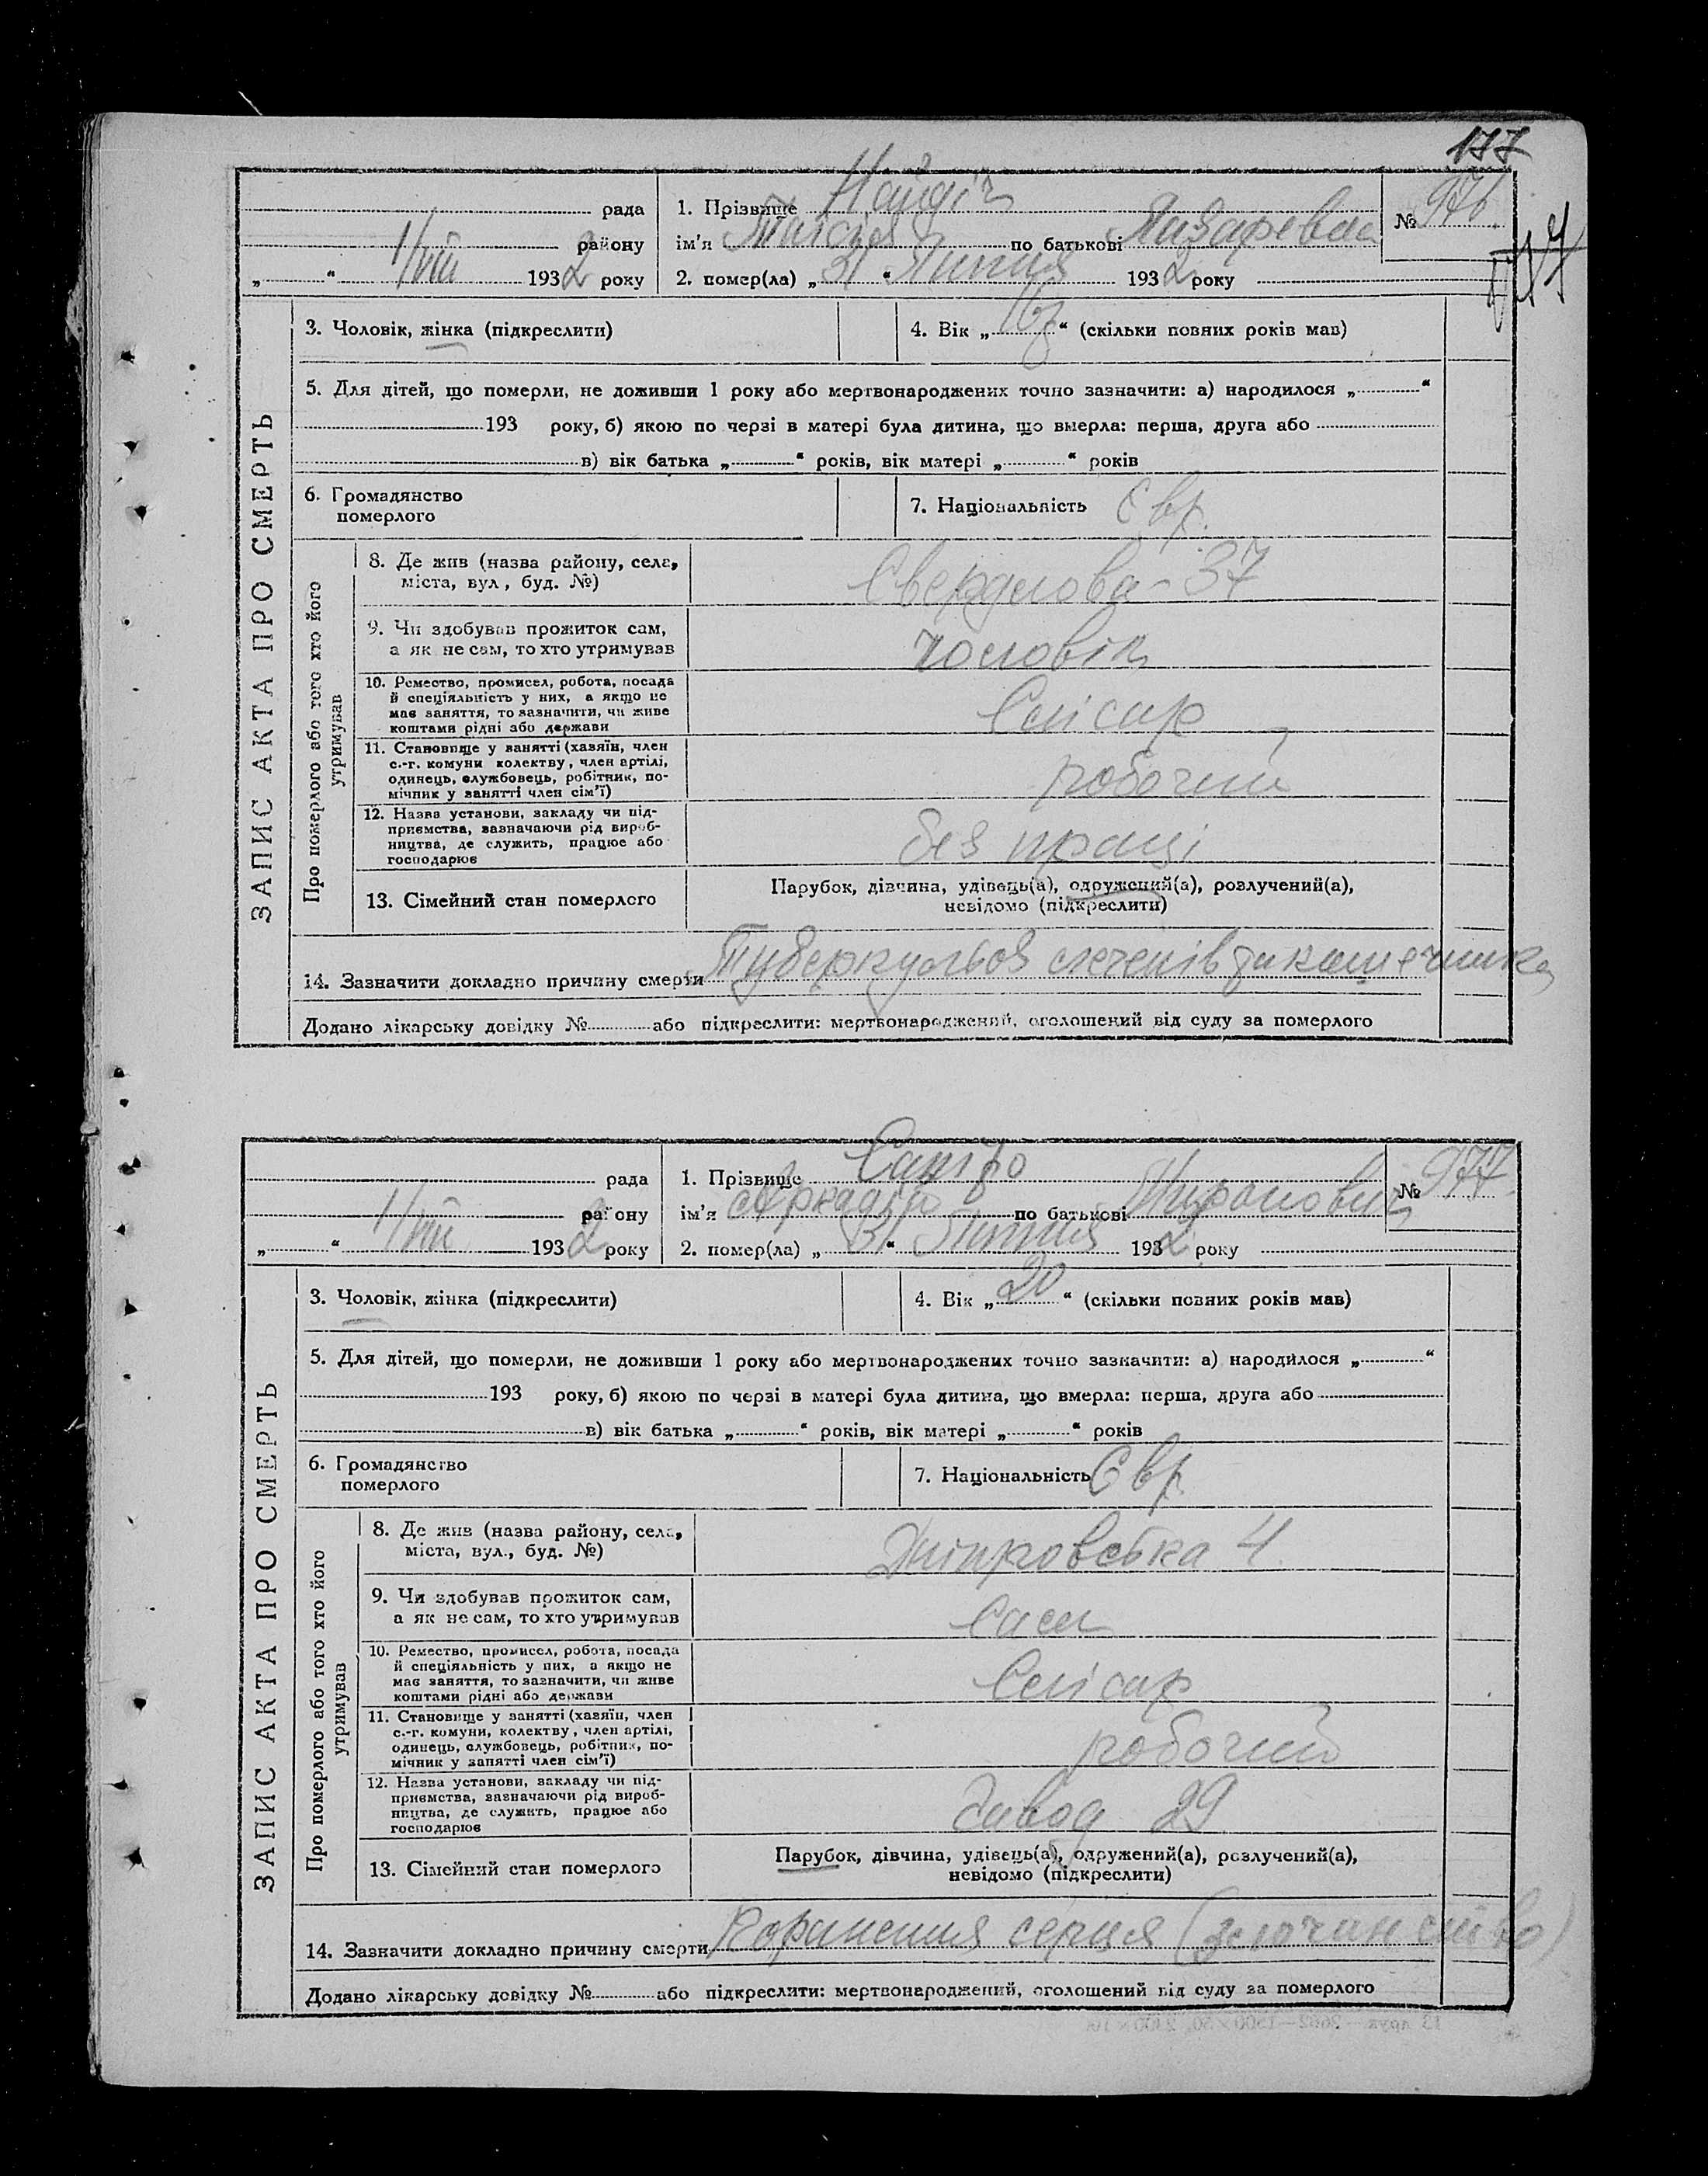 177
рада
району
„ “ 1/VIII 1932 року
1. Прізвище Найдіч
ім'я Таїсія по батькові Лазаревна
2. помер(ла) „31“ Липня 1932 року
№ 976
ЗАПИС АКТА ПРО СМЕРТЬ
3. Чоловік, жінка (підкреслити)
4. Вік „ “ (скільки повних років мав)
5. Для дітей, що померли, не доживши 1 року або мертвонароджених точно зазначити: а) народилося „ “
193 року, б) якою по черзі в матері була дитина, що вмерла: перша, друга або
в) вік батька „ “ років, вік матері „ “ років
6. Громадянство
померлого
7. Національність Євр.
Про померлого або того хто його
утримував
8. Де жив (назва району, села,
міста, вул, буд. №)
Свердлова - 37
9. Чи здобував прожиток сам,
а як не сам, то хто утримував
чоловік
10. Ремество, промисел, робота, посада
й спеціяльність у них, а якщо не
має заняття, то зазначити, чи живе
коштами рідні або держави
Слісар
11. Становище у занятті (хазяїн, член
с.-г. комуни колективу, член артілі,
одинець, службовець, робітник, по-
мічник у занятті член сім'ї)
робочий
12. Назва установи, закладу чи під-
приємства, зазначаючи рід вироб-
ництва, де служить, працює або
господарює
без праці
13. Сімейний стан померлого
Парубок, дівчина, удівець(а), одружений(а), розлучений(а),
невідомо (підкреслити)
14. Зазначити докладно причину смерти Туберкульоз легенів та кишечника
Додано лікарську довідку № або підкреслити: мертвонароджений, оголошений від суду за померлого
рада
району
„ “ 1/VIII 1932 року
1. Прізвище Сапіро
ім'я Аркадій по батькові Миронович
2. помер(ла) „31“ Липня 1932 року
№ 977
ЗАПИС АКТА ПРО СМЕРТЬ
3. Чоловік, жінка (підкреслити)
4. Вік „20“ (скільки повних років мав)
5. Для дітей, що померли, не доживши 1 року або мертвонароджених точно зазначити: а) народилося „ “
193 року, б) якою по черзі в матері була дитина, що вмерла: перша, друга або
в) вік батька „ “ років, вік матері „ “ років
6. Громадянство
померлого
7. Національність Євр
Про померлого або того хто його
утримував
8. Де жив (назва району, села,
міста, вул., буд. №)
Дніпровська 4
9. Чи здобував прожиток сам,
а як не сам, то хто утримував
Сам
10. Ремество, промисел, робота, посада
й спеціяльність у них, а якщо не
має заняття, то зазначити, чи живе
коштами рідні або держави
Слісар
11. Становище у занятті (хазяїн, член
с.-г. комуни, колективу, член артілі,
одинець, службовець, робітник, по-
мічник у занятті член сім'ї)
робочий
12. Назва установи, закладу чи під-
приємства, зазначаючи рід вироб-
ництва, де служить, працює або
господарює
Завод 29
13. Сімейний стан померлого
Парубок, дівчина, удівець(а), одружений(а), розлучений(а),
невідомо (підкреслити)
14. Зазначити докладно причину смерти Поранення серця
Додано лікарську довідку № або підкреслити: мертвонароджений, оголошений від суду за померлого